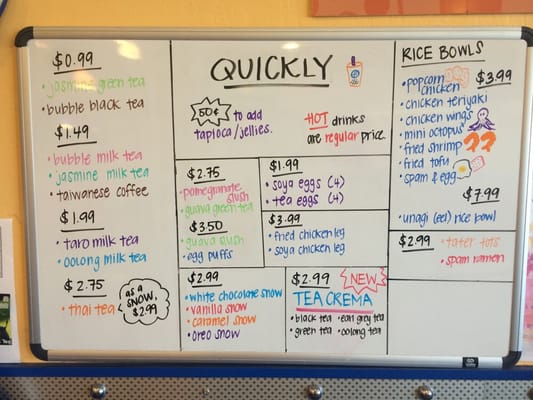 $0.99
• jasmine green tea
• bubble black tea
$1.49
• bubble milk tea
• jasmine milk tea
• taiwanese coffee
$1.99
• taro milk tea
• oolong milk tea
$2.75
• thai tea
as a
SNOW,
$2.99
QUICKLY
50¢ to add
tapioca/jellies.
HOT drinks
are regular price.
$2.75
• pomegranate
slush
• guava green tea
$3.50
• guava slush
• egg puffs
$1.99
• soya eggs (4)
• tea eggs (4)
$3.99
• fried chicken leg
• soya chicken leg
$2.99
• white chocolate snow
• vanilla snow
• caramel snow
• oreo snow
$2.99
NEW
TEA CREMA
• black tea • earl grey tea
• green tea • oolong tea
RICE BOWLS
$3.99
• popcorn
chicken
• chicken teriyaki
• chicken wings
• mini octopus
• fried shrimp
• fried tofu
• spam & egg
$7.99
• unagi (eel) rice bowl
$2.99
• tater tots
• spam ramen